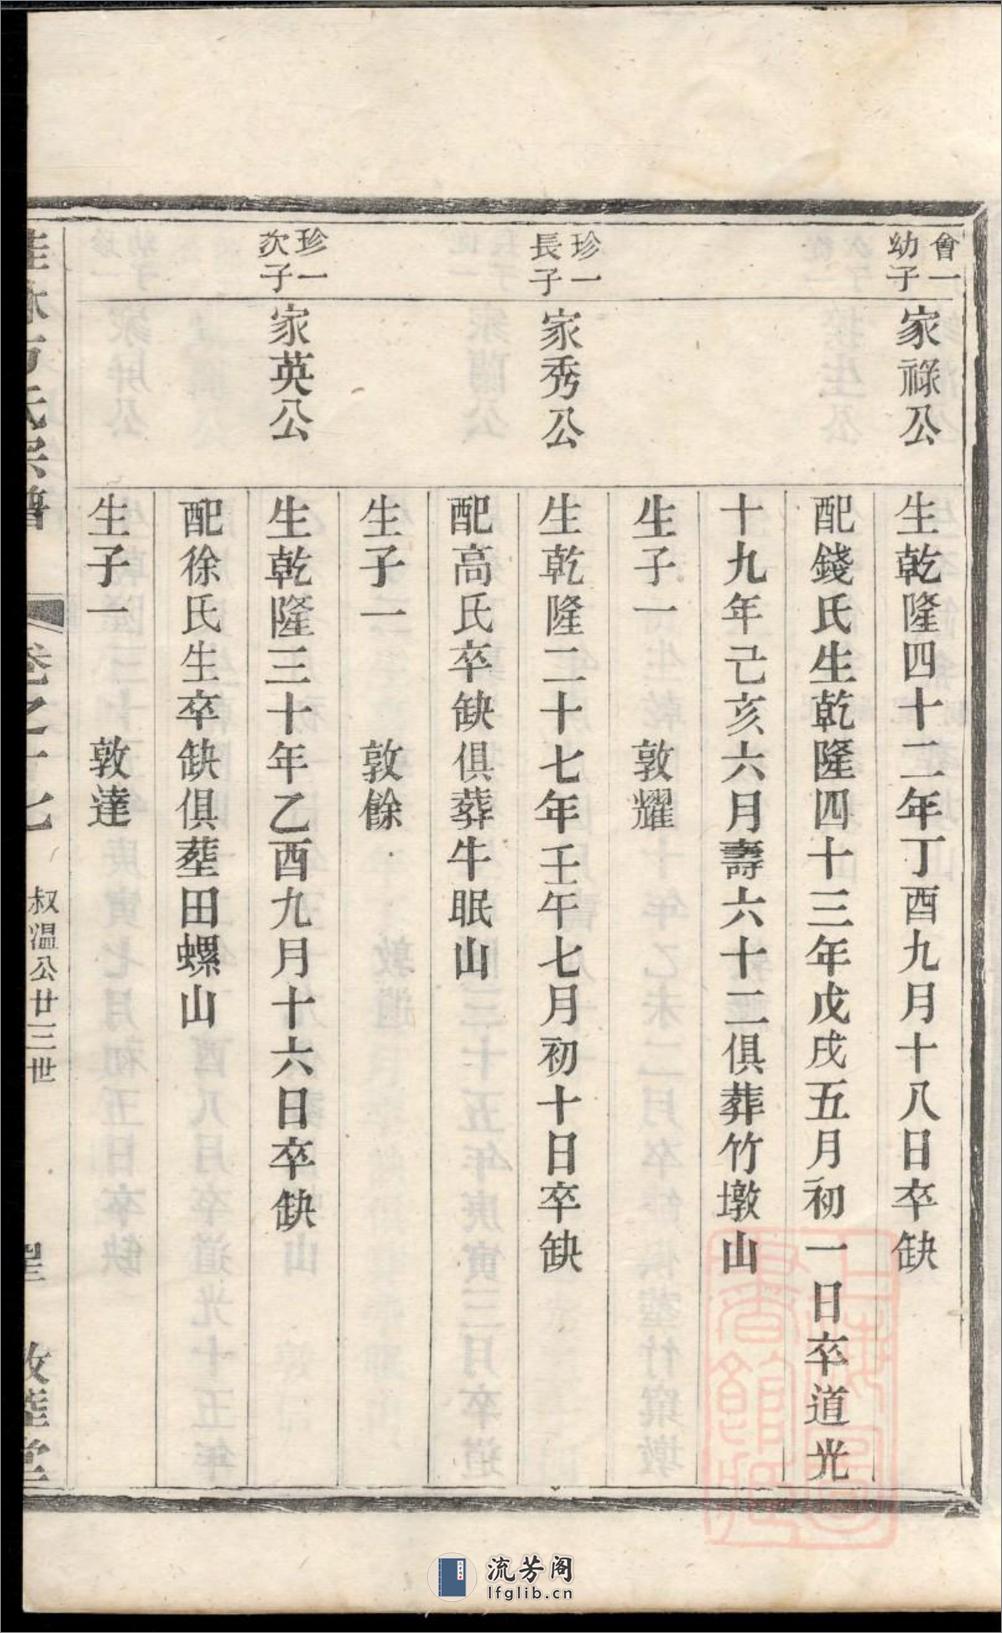 會一
幼子
家祿公
生乾隆四十二年丁酉九月十八日卒缺
配錢氏生乾隆四十三年戊戌五月初一日卒道光
十九年己亥六月壽六十二俱葬竹墩山
生子一　敦耀
珍一
長子
家秀公
生乾隆二十七年壬午七月初十日卒缺
配高氏卒缺俱葬牛眠山
生子一　敦餘
珍一
次子
家英公
生乾隆三十年乙酉九月十六日卒缺
配徐氏生卒缺俱塟田螺山
生子一　敦達
叔溫公廿三世
流芳阁
lfglib.cn